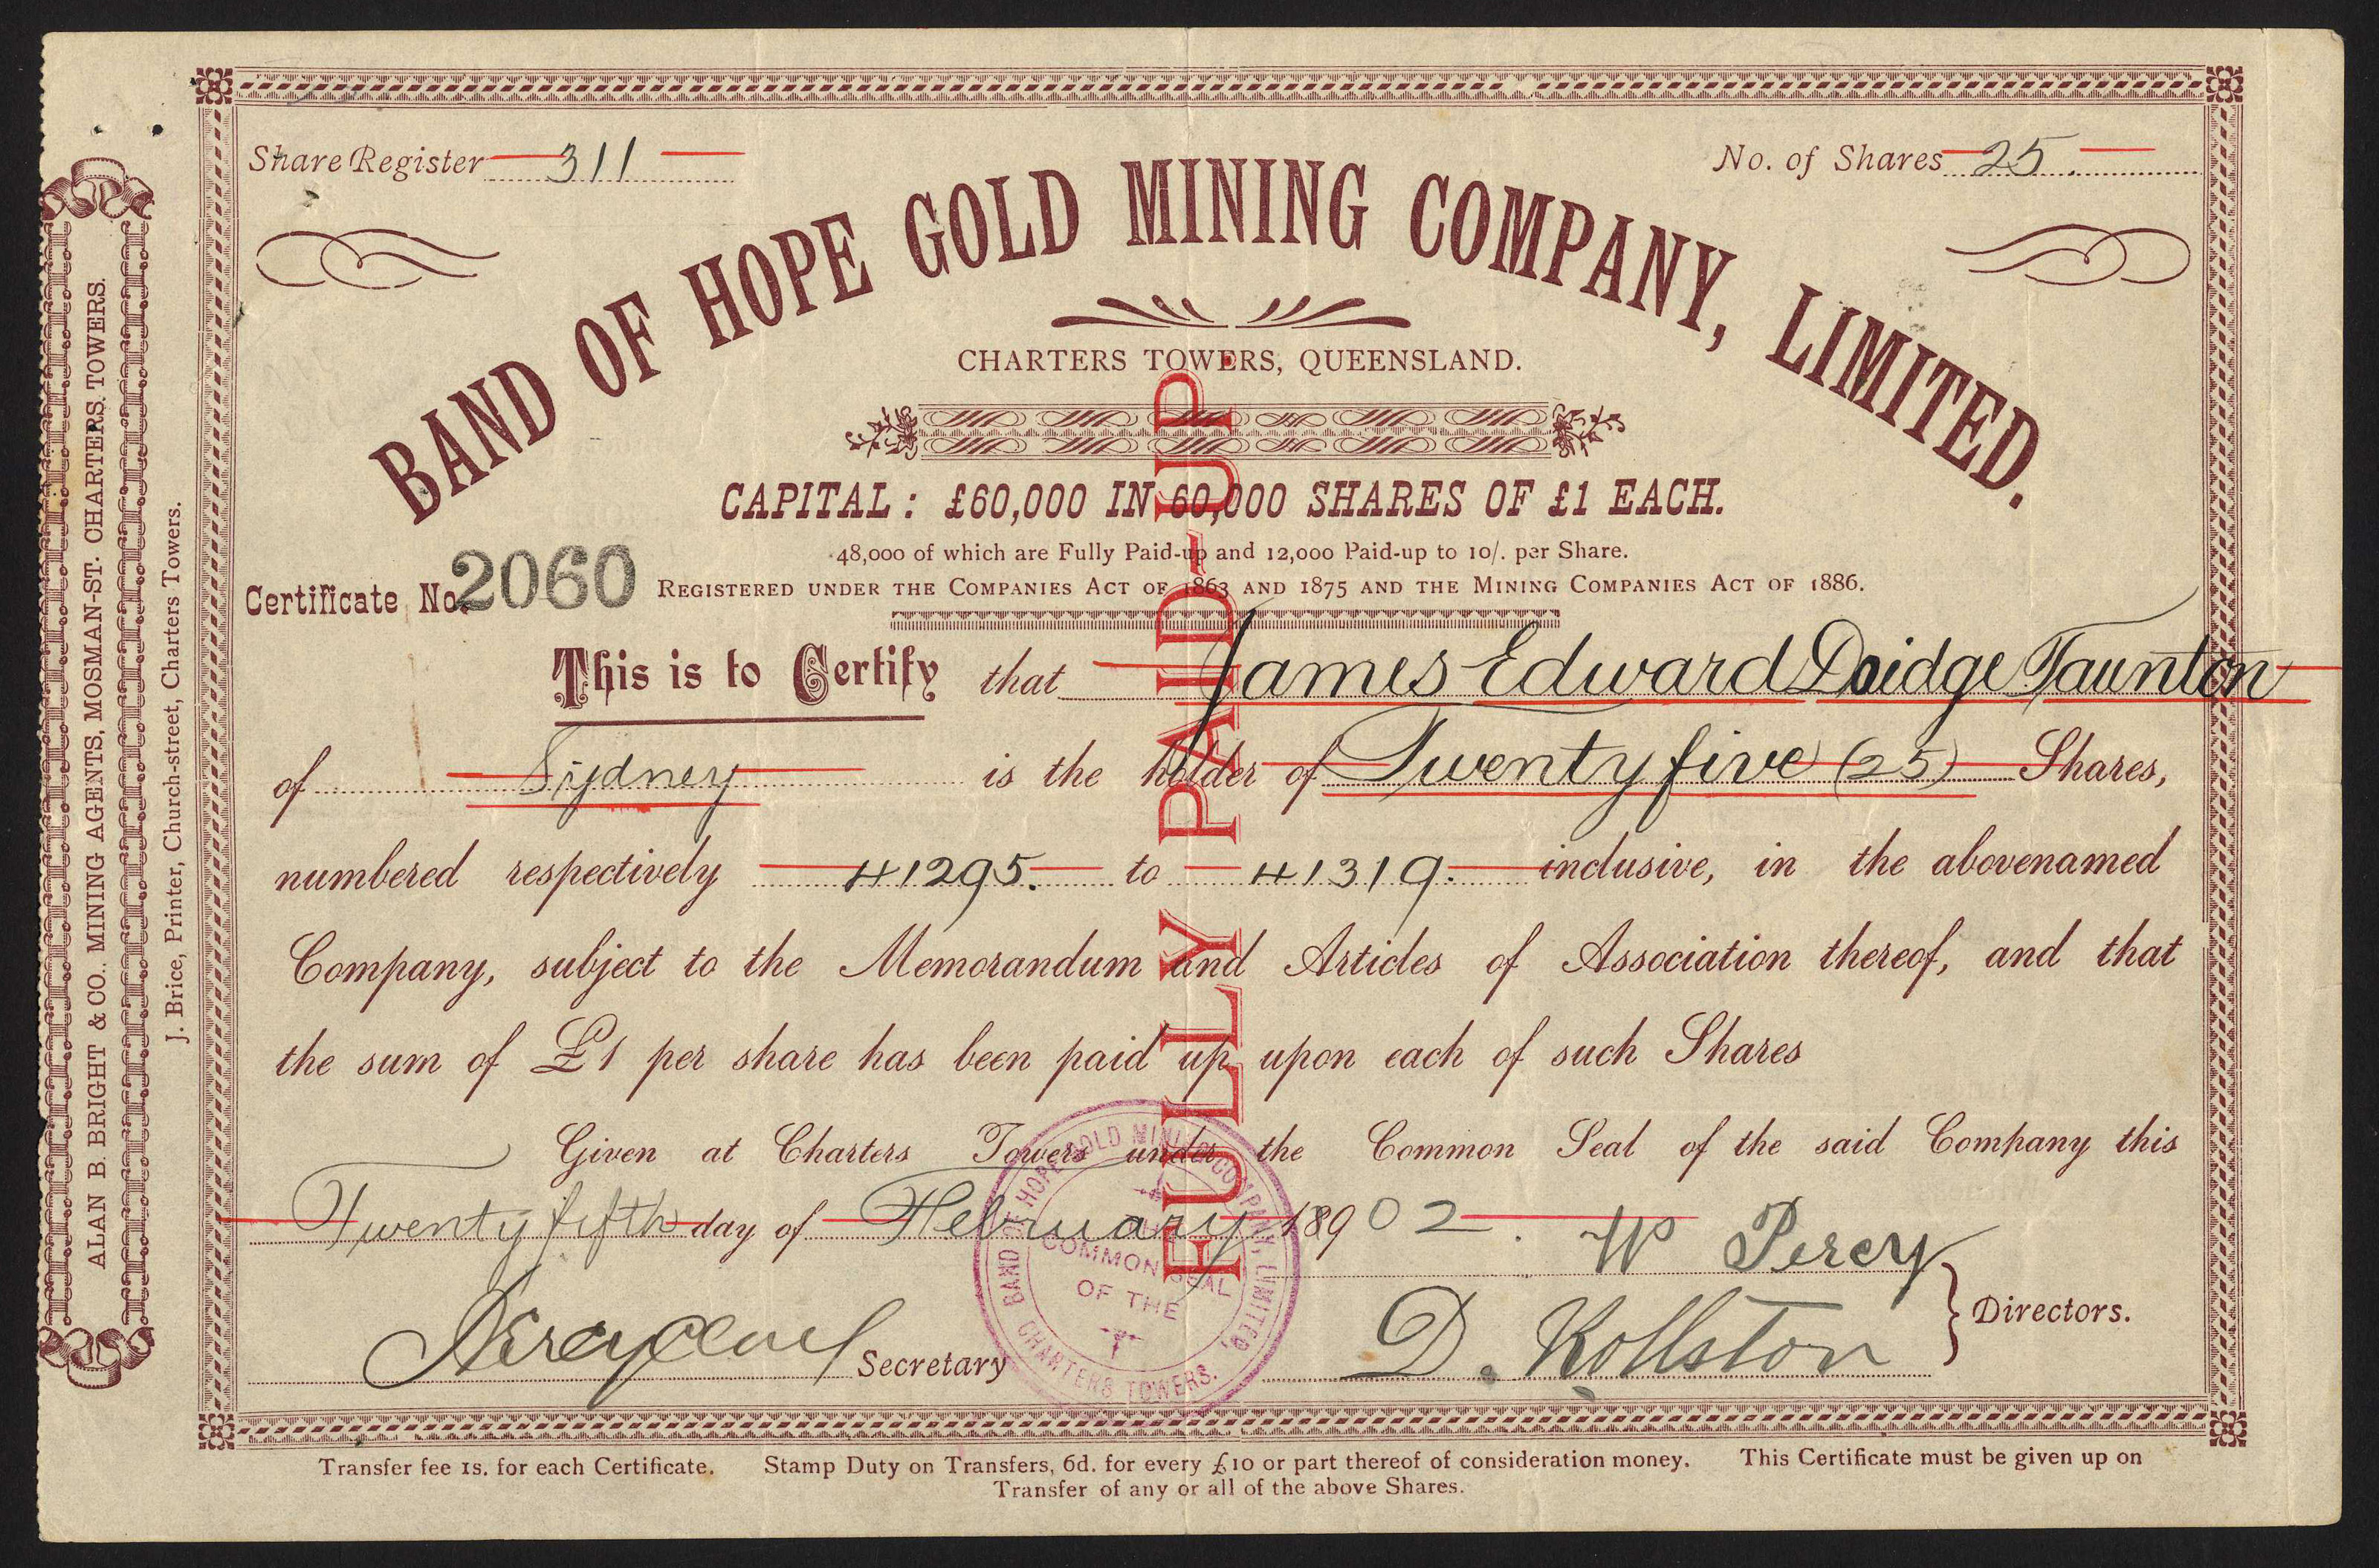 Share Register 311
No. of Shares 25
BAND OF HOPE GOLD MINING COMPANY, LIMITED.
CHARTERS TOWERS, QUEENSLAND.
CAPITAL: £60,000 IN 60,000 SHARES OF £1 EACH.
48,000 of which are Fully Paid-up and 12,000 Paid-up to 10/. per Share.
Certificate No. 2060
REGISTERED UNDER THE COMPANIES ACT OF 1863 AND 1875 AND THE MINING COMPANIES ACT OF 1886.
This is to Certify that James Edward Doidge Taunton
of Sydney is the holder of Twenty five (25) Shares,
numbered respectively 41295. to 41319. inclusive, in the abovenamed
Company, subject to the Memorandum and Articles of Association thereof, and that
the sum of £1 per share has been paid up upon each of such Shares
Given at Charters Towers under the Common Seal of the said Company this
Twenty fifth day of February 18902.
W Percy
Secretary
D. Rollston
Directors.
FULLY PAID-UP
BAND OF HOPE GOLD MINING COMPANY, LIMITED,
CHARTERS TOWERS.
COMMON SEAL
OF THE
Transfer fee 1s. for each Certificate. Stamp Duty on Transfers, 6d. for every £10 or part thereof of consideration money. This Certificate must be given up on
Transfer of any or all of the above Shares.
ALAN B. BRIGHT & CO., MINING AGENTS, MOSMAN-ST. CHARTERS. TOWERS.
J. Brice, Printer, Church-street, Charters Towers.